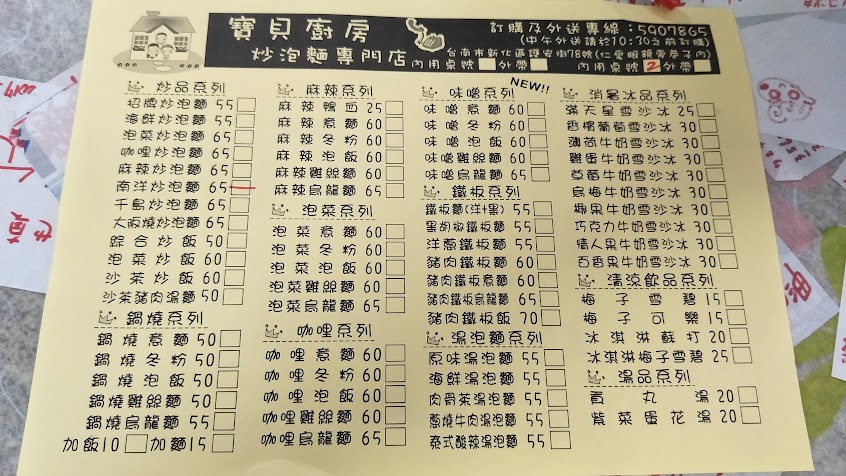 寶貝廚房
炒泡麵專門店
訂購及外送專線：5907865
(中午外送請於10:30之前訂購)
台南市新化區護安街78號(仁愛眼鏡旁巷子內)
內用桌號 外帶 內用桌號 2 外帶
炒品系列
招牌炒泡麵 55
海鮮炒泡麵 55
泡菜炒泡麵 65
咖哩炒泡麵 65
麻辣炒泡麵 65
南洋炒泡麵 65
千島炒泡麵 65
大阪燒炒泡麵 65
綜合炒飯 50
泡菜炒飯 60
沙茶炒飯 60
沙茶豬肉湯麵 50
鍋燒系列
鍋燒意麵 50
鍋燒冬粉 50
鍋燒泡飯 50
鍋燒雞絲麵 50
鍋燒烏龍麵 55
加飯10 加麵15
麻辣系列
麻辣鴨血 25
麻辣意麵 60
麻辣冬粉 60
麻辣泡飯 60
麻辣雞絲麵 60
麻辣烏龍麵 65
泡菜系列
泡菜意麵 60
泡菜冬粉 60
泡菜泡飯 60
泡菜雞絲麵 60
泡菜烏龍麵 65
咖哩系列
咖哩意麵 60
咖哩冬粉 60
咖哩泡飯 60
咖哩雞絲麵 60
咖哩烏龍麵 65
味噌系列 NEW!!
味噌意麵 60
味噌冬粉 60
味噌泡飯 60
味噌雞絲麵 60
味噌烏龍麵 65
鐵板系列
鐵板麵(洋+黑) 55
黑胡椒鐵板麵 55
洋蔥鐵板麵 55
豬肉鐵板意麵 60
豬肉鐵板烏龍麵 65
豬肉鐵板飯 70
湯泡麵系列
原味湯泡麵 55
海鮮湯泡麵 55
肉骨茶湯泡麵 55
蔥燒牛肉湯泡麵 55
泰式酸辣湯泡麵 55
消暑冰品系列
滿天星雪沙冰 25
香檳葡萄雪沙冰 30
薄荷牛奶雪沙冰 30
雞蛋牛奶雪沙冰 30
草莓牛奶雪沙冰 30
烏梅牛奶雪沙冰 30
椰果牛奶雪沙冰 30
巧克力牛奶雪沙冰 30
情人果牛奶雪沙冰 30
百香果牛奶雪沙冰 30
清涼飲品系列
梅子雪碧 15
梅子可樂 15
冰淇淋蘇打 20
冰淇淋梅子雪碧 25
湯品系列
貢丸湯 20
紫菜蛋花湯 20